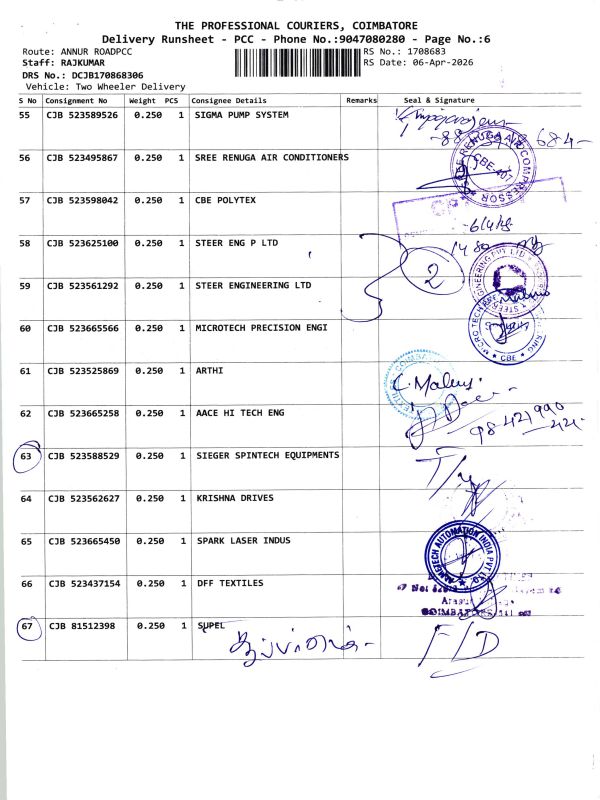 THE PROFESSIONAL COURIERS, COIMBATORE
Delivery Runsheet - PCC - Phone No.:9047080280 - Page No.:6
Route: ANNUR ROADPCC RS No.: 1708683
Staff: RAJKUMAR RS Date: 06-Apr-2026
DRS No.: DCJB170868306
Vehicle: Two Wheeler Delivery
S No Consignment No Weight PCS Consignee Details Remarks Seal & Signature
55 CJB 523589526 0.250 1 SIGMA PUMP SYSTEM
56 CJB 523495867 0.250 1 SREE RENUGA AIR CONDITIONERS
CBE-407
57 CJB 523598042 0.250 1 CBE POLYTEX
58 CJB 523625100 0.250 1 STEER ENG P LTD
2
59 CJB 523561292 0.250 1 STEER ENGINEERING LTD
60 CJB 523665566 0.250 1 MICROTECH PRECISION ENGI
CBE
61 CJB 523525869 0.250 1 ARTHI
62 CJB 523665258 0.250 1 AACE HI TECH ENG
63 CJB 523588529 0.250 1 SIEGER SPINTECH EQUIPMENTS
64 CJB 523562627 0.250 1 KRISHNA DRIVES
65 CJB 523665450 0.250 1 SPARK LASER INDUS
66 CJB 523437154 0.250 1 DFF TEXTILES
67 CJB 81512398 0.250 1 SUPEL
F/D